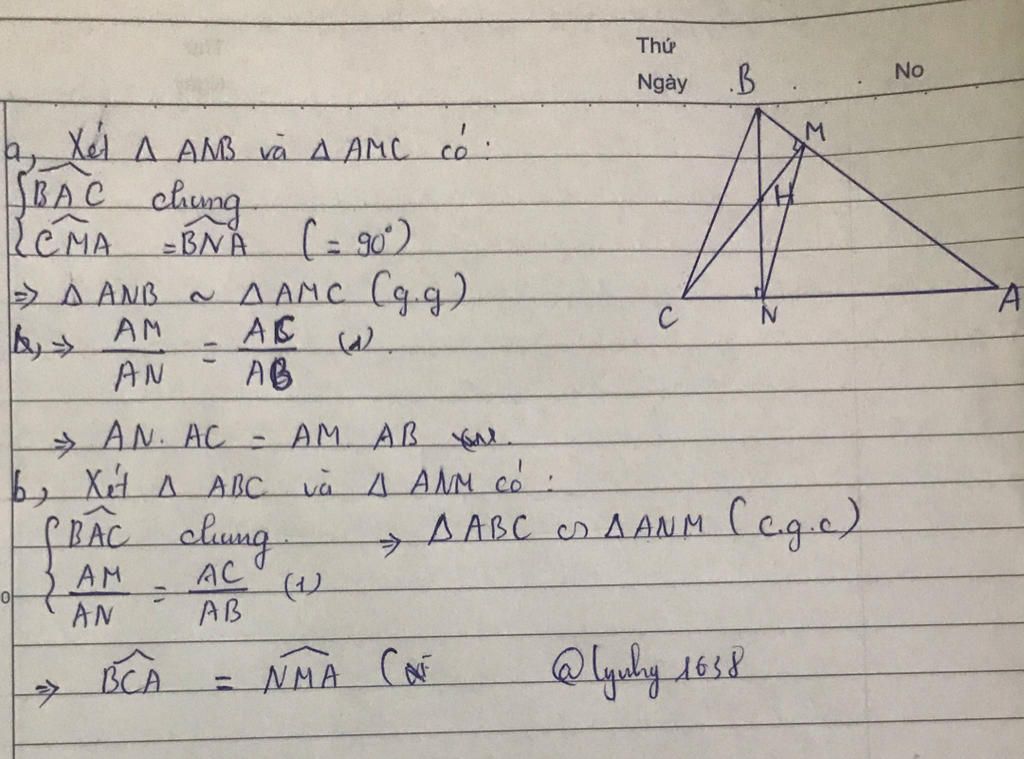 Thứ
Ngày No
a, Xét Δ ANB và Δ AMC có :
{ BAC chung
{ CMA = BNA ( = 90°)
=> Δ ANB ~ Δ AMC (g.g)
=> AM/AN = AC/AB (1)
=> AN. AC = AM. AB
b, Xét Δ ABC và Δ ANM có :
{ BAC chung. => Δ ABC ∽ Δ ANM ( c.g.c)
{ AM/AN = AC/AB (1)
=> BCA = NMA ( @lynhy1638
B
M
H
C
N
A